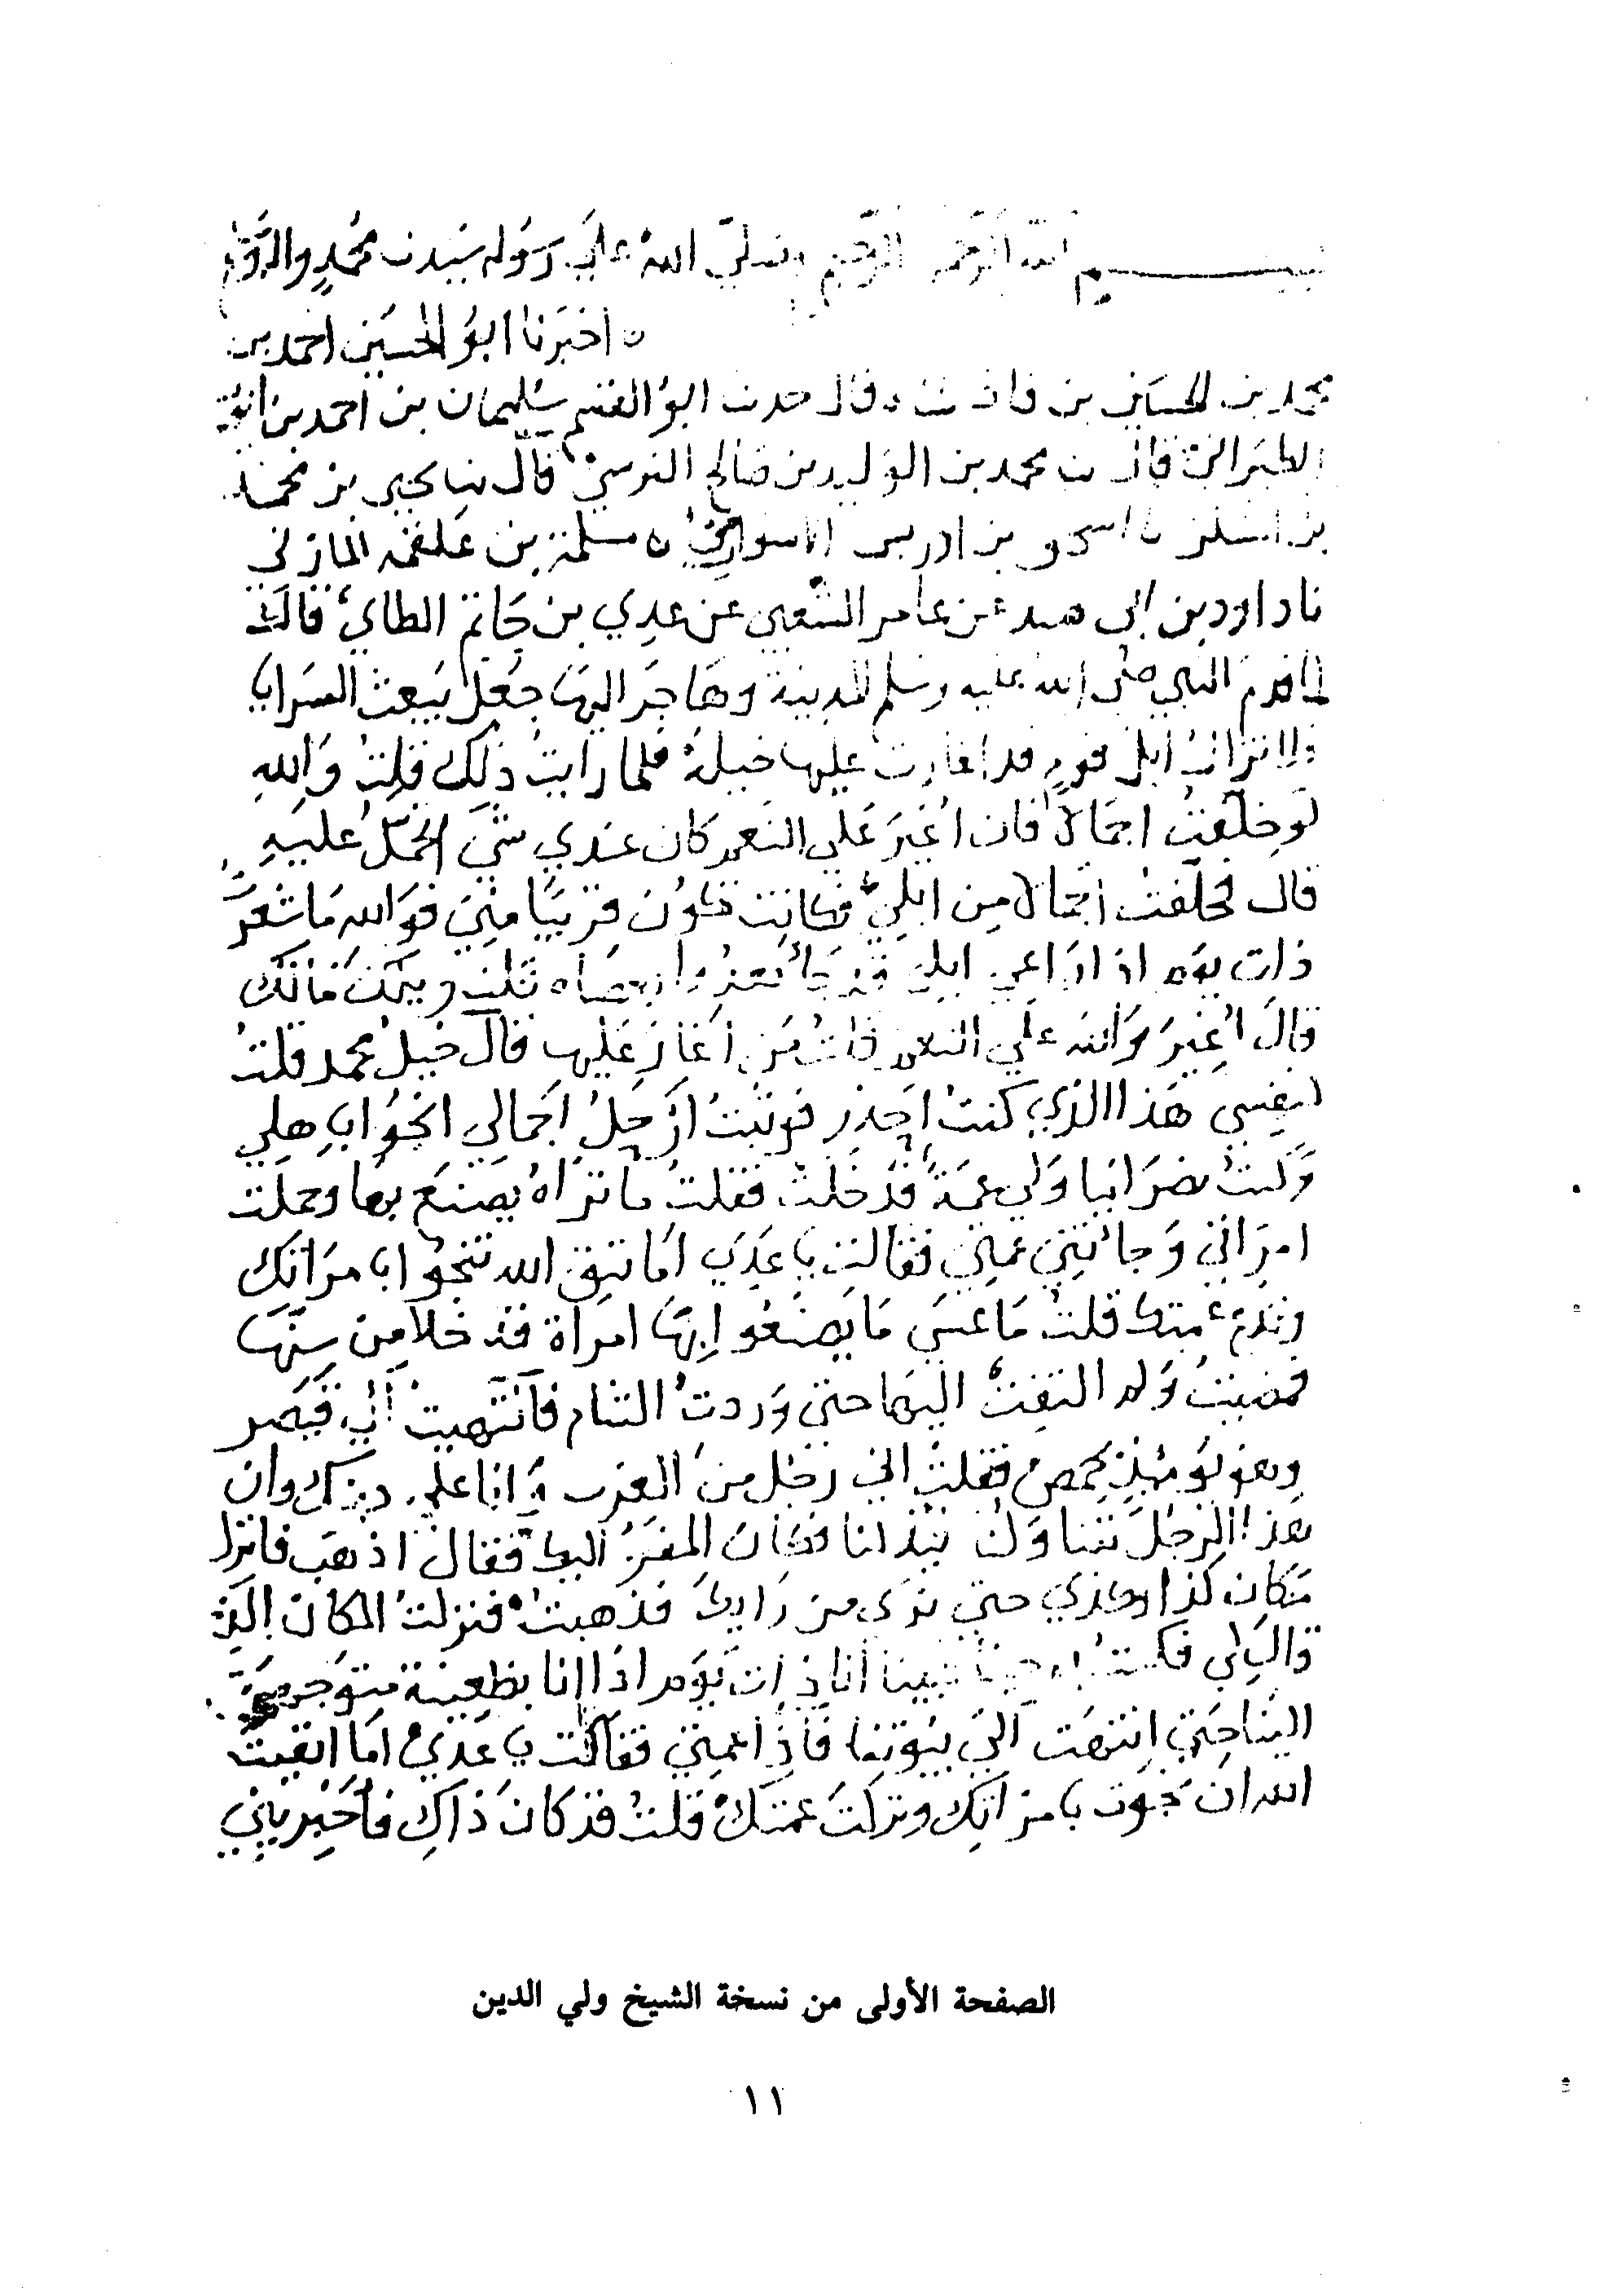 بسم الله الرحمن الرحيم وصلي الله علي رسوله سيدنا محمد واله
اخبرنا ابو الحسين احمد بن
محمد بن الحسين بن فاذشاه قال حدثنا ابو القسم سليمان بن احمد بن ايوب
الطبراني قال نا محمد بن الوليد بن صالح النرسي قال نا يحيي بن محمد
بن السكن نا اسحق بن ادريس الاسواري نا مسلمة بن علقمه المازني
نا داود بن ابي هند عن عامر الشعبي عن عدي بن حاتم الطاي قال
لما قدم النبي صلى الله عليه وسلم المدينة وهاجر اليها جعل يبعث السرايا
فلا تزال ابل قوم قد اغارت عليها خيله فلما رايت ذلك قلت والله
لو خلفت اجمالا فان اغير علي النعم كان عندي شي اتحمل عليه
قال فخلفت اجمالا من ابلي فكانت تكون قريبا مني فوالله ما شعرت
ذات يوم اذا راعي ابلي قد جا يعدوا بعصاه قلت ويحك مالك
قال اغير والله علي النعم قلت من اغار عليها قال خيل محمد قلت
لنفسي هذا الذي كنت احذر فوثبت ارحل اجمالي انجوا باهلي
وكنت نصرانيا ولي عمة قد خلت فقلت ما تراه يصنع بها وحملت
امراتي وجائتني عمتي فقالت يا عدي اما تتق الله تنجوا بامراتك
وتدع عمتك قلت ما عسي ما يصنعوا بها امراة قد خلا من سنها
فمضيت ولم التفت اليها حتي وردت الشام فانتهيت الي قيصر
وهو يومئذ بحمص فقلت اني رجل من العرب وانا علي دينك وان
هذا الرجل تناولنا فكان المفر اليك فقال اذهب فانزل
مكان كذا وكذي حتي نرى من رايك فذهبت فنزلت المكان الذي
قال لي فكنت به حينا فبينا انا ذات يوم اذا انا بظعينة متوجهة
الينا حتي انتهت الي بيوتنا فاذا عمتي فقالت يا عدي اما اتقيت
الله ان نجوت بامراتك وتركت عمتك قلت قد كان ذاك فاخبريني
الصفحة الأولى من نسخة الشيخ ولي الدين
١١